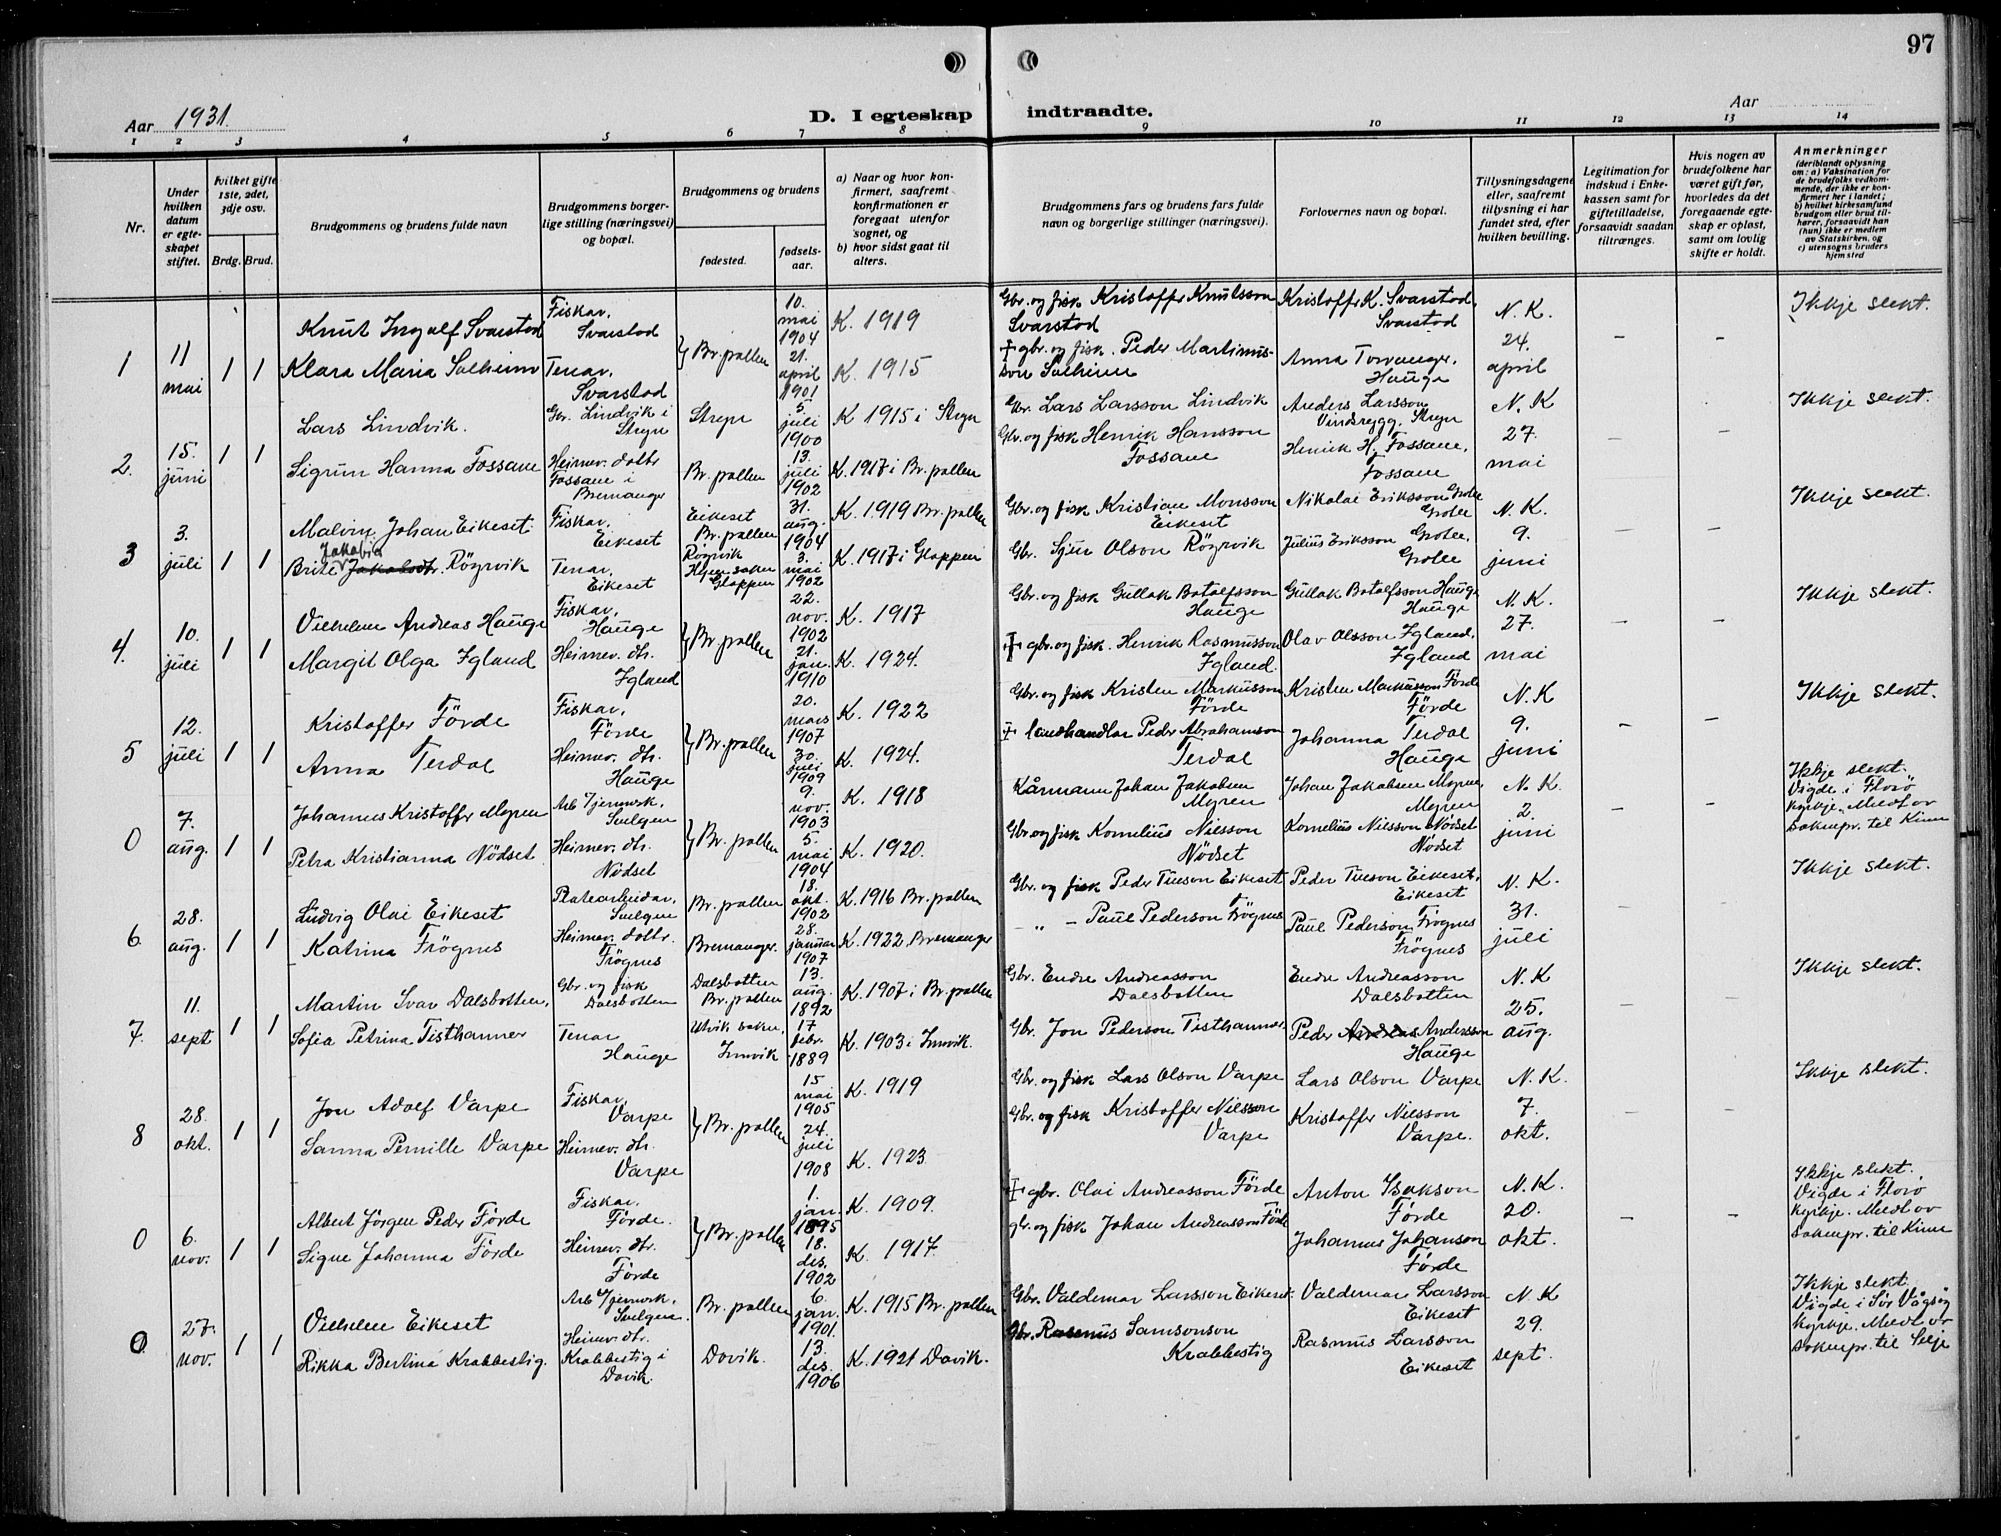 97
Aar 1931.
D. I egteskap indtraadte.
Aar
1 2 3 4 5 6 7 8 9 10 11 12 13 14
Nr.
Under hvilken datum er egteskapet stiftet.
hvilket gifte 1ste, 2det, 3dje osv.
Brdg. Brud.
Brudgommens og brudens fulde navn
Brudgommens borgerlige stilling (næringsvei) og bopæl.
Brudgommens og brudens
fødested.
fødselsaar.
a) Naar og hvor konfirmert, saafremt konfirmationen er foregaat utenfor sognet, og
b) hvor sidst gaat til alters.
Brudgommens fars og brudens fars fulde navn og borgerlige stillinger (næringsvei).
Forlovernes navn og bopæl.
Tillysningsdagene eller, saafremt tillysning ei har fundet sted, efter hvilken bevilling.
Legitimation for indskud i Enkekassen samt for giftetilladelse, forsaavidt saadan tiltrænges.
Hvis nogen av brudefolkene har været gift før, hvorledes da det foregaaende egteskap er opløst, samt om lovlig skifte er holdt.
Anmerkninger
(deriblandt oplysning om: a) Vaksination for de brudefolks vedkommende, der ikke er konfirmert her i landet; b) hvilket kirkesamfund brudgom eller brud tilhører, forsaavidt han (hun) ikke er medlem av Statskirken, og c) utensogns bruders hjemsted
1 11 mai 1 1
Knut Ingolf Svarstad Fiskar, Svarstad
Klara Maria Solheim Tenar, Svarstad
Br.pollen
10. mai 1904 K. 1919
21. april 1901 K. 1915
Gbr. og fisk Kristoffer Knutsson Svarstad
+ gbr. og fisk. Peder Martinusson Solheim
Kristoffer K. Svarstad, Svarstad
Anna Torvanger, Hauge
N. K. 24. april – –
Ikkje slekt.
2. 15. juni 1 1
Lars Lindvik. Gbr. Lindvik i Stryn Stryn 5 juli 1900 K 1915 i Stryn
Sigrun Hanna Fossane Heimev. dottr Fossane i Bremanger Br.pollen 13. juli 1902 K. 1917 i Br.pollen
Gbr. Lars Larsson Lindvik
Gbr. og fisk Henrik Hansson Fossane
Anders Larsson Vindsrygg, Stryn
Henrik H. Fossane, Fossane
N. K 27. mai – –
Ikkje slekt.
3 3. juli 1 1
Malvin Johan Eikeset Fiskar, Eikeset Eikeset Br.pollen 31. aug. 1904 K. 1919 Br.pollen
Brite Jakobia Jakobsdtr. Röyrvik Tenar, Eikeset Röyrvik Hyen sokn Gloppen 3. mai 1902 K. 1917 i Gloppen
Gbr. og fisk Kristian Monsson Eikeset
Gbr. Sjur Olson Röyrvik
Nikolai Eriksson Grotle Grotle
Julius Eriksson Grotle, Grotle
N. K. 9. juni – –
Ikkje slekt.
4. 10. juli 1 1
Vilhelm Andreas Hauge Fiskar, Hauge
Margit Olga Igland Heimev. dtr. Igland
Br.pollen
22. nov. 1902 K. 1917
21. jan. 1910 K. 1924.
Gbr. og fisk Gullak Botolfsson Hauge
+ gbr. og fisk. Henrik Rasmusson Igland.
Gullak Botolfsson Hauge Hauge
Olav Olsson Igland, Igland
N. K. 27. mai – –
Ikkje slekt.
5 12. juli 1 1
Kristoffer Förde Fiskar, Förde
Anna Terdal Heimev. dtr. Hauge
Br.pollen
20. mars 1907 K. 1922
30. juli 1909 K. 1924.
Gbr. og fisk Kristen Markusson Förde
+ landhandlar Peder Abrahamson Terdal
Kristen Markusson Förde Förde
Johanna Terdal Hauge
N. K 9. juni – –
Ikkje slekt.
0 7. aug. 1 1
Johannes Kristoffer Myren Arb v/jernverk, Svelgen
Petra Kristianna Nödset Heimev. dtr. Nödset
Br.pollen
9. nov. 1903 K. 1918
5. mai 1904 K. 1920.
Kårmann Johan Jakobsen Myren
Gbr og fisk Kornelius Nilsson Nödset
Johan Jakobsen Myren, Myren
Kornelius Nilsson Nödset Nödset
N. K. 2. juni – –
Ikkje slekt. Vigde i Florö kyrkje. Meldt ov soknepr. til Kinn
6. 28. aug. 1 1
Ludvig Olai Eikeset Platearbeidar, Svelgen Br.pollen 18. okt. 1902 K. 1916 Br.pollen
Katrina Frögnes Heimev. dottr. Frögnes Bremanger. 28. januar 1907 K. 1922 Bremanger
Gbr. og fisk Peder Tueson Eikeset
– „ – Paul Pederson Frögnes
Peder Tueson Eikeset, Eikeset
Paul Pederson Frögnes Frögnes
N. K. 31. juli – –
Ikkje slekt.
7. 11. sept 1 1
Martin Ivar Dalsbotten, Gbr. og fisk Dalsbotten Dalsbotten Br.pollen 13. aug. 1892 K. 1907 i Br.pollen
Sofia Petrina Tisthammer Tenar Hauge Utvik sokn, Innvik 17 febr. 1889 K. 1903 i Innvik.
Gbr. Endre Andreasson Dalsbotten
Gbr. Jon Pederson Tisthammer
Endre Andreasson Dalsbotten
Peder Andreas Andersson Hauge
N. K 25. aug. – –
Ikkje slekt.
8 28. okt. 1 1
Jon Adolf Varpe Fiskar, Varpe
Sanna Pernille Varpe Heimev. dtr. Varpe
Br.pollen
15 mai 1905 K. 1919
24. juli 1908 K. 1923
Gbr. og fisk Lars Olson Varpe
Gbr. og fisk Kristoffer Nilsson Varpe
Lars Olson Varpe
Kristoffer Nilsson Varpe.
N. K. 7. okt. – –
Ikkje slekt.
0 6. nov. 1 1
Albert Jörgen Peder Förde Fiskar, Förde.
Signe Johanna Förde Heimev. dtr. Förde
Br.pollen
1. jan. 1895 K. 1909.
18. des. 1902 K. 1917.
+ gbr. Olai Andreasson Förde
gbr. og fisk Johan Andreasson Förde
Anton Isakson Förde
Johannes Johanson Förde
N. K. 20. okt. – –
Ikkje slekt. Vigde i Florö kyrkje. Meldt ov soknepr. til Kinn
0 27. nov. 1 1
Vilhelm Eikeset Arb v/jernverk, Svelgen. Br.pollen 6. jan. 1901. K. 1915 Br.pollen
Rikka Bertina Krabbestig. Heimev. dtr. Krabbestig i Davik. Davik. 13. des. 1906 K. 1921 Davik.
Gbr. Valdemar Larsson Eikeset.
Gbr. Rasmus Samsonson Krabbestig
Valdemar Larsson Eikeset
Rasmus Larsson Eikeset
N. K 29. sept.
Ikkje slekt. Vigde i Sör Vågsöy kyrkje. Meldt ov soknepr. til Selje